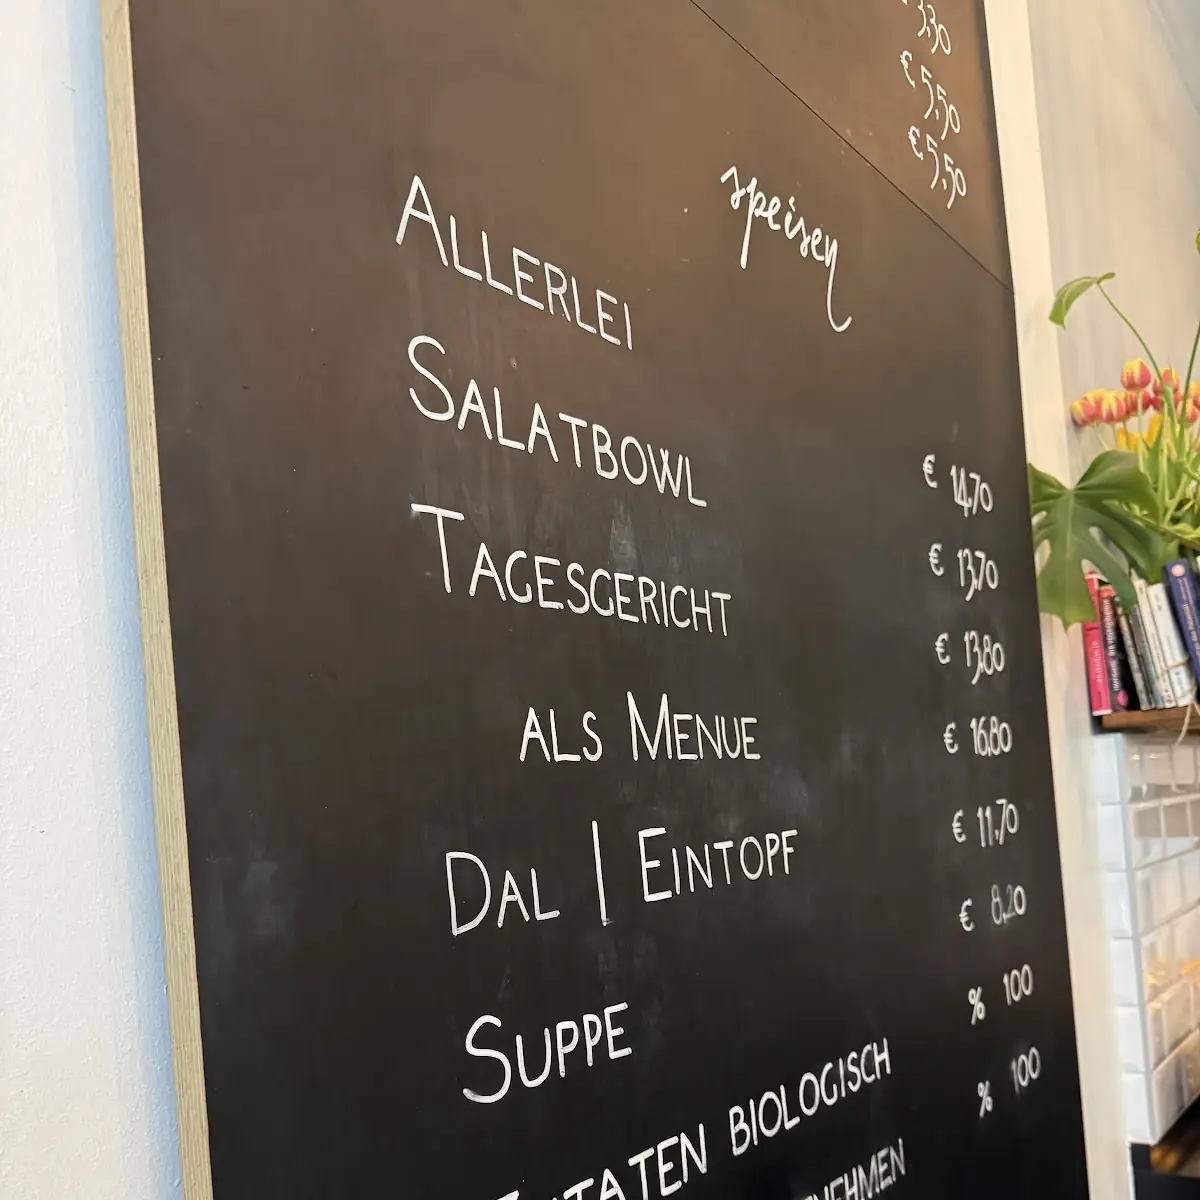 3,30
€ 5,50
€ 5,50
speisen
ALLERLEI € 14,70
SALATBOWL € 13,70
TAGESGERICHT € 13,80
ALS MENUE € 16,80
DAL | EINTOPF € 11,70
SUPPE € 8,20
BIOLOGISCH % 100
% 100